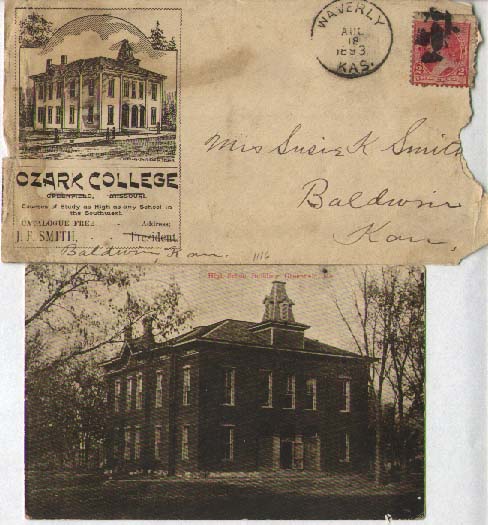 WAVERLY
AUG
18
1893
KAS.
OZARK COLLEGE
GREENFIELD, MISSOURI.
Courses of Study as High as any School in
the Southwest.
CATALOGUE FREE - Address;
J. F. SMITH, President
Baldwin Kan.
Mrs Susie K Smith
Baldwin
Kan.
High School Building, Greenfield, Mo.